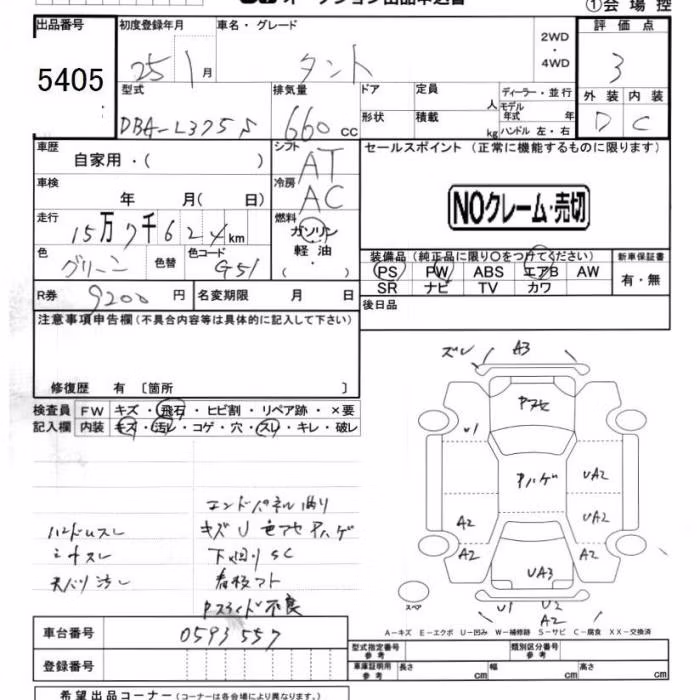 オークション出品申込書
①会場控
出品番号
5405
初度登録年月
25 1 月
車名・グレード
タント
2WD
・
4WD
評価点
3
型式
DBA-L375S
排気量
660 cc
ドア
形状
定員
人
積載
kg
ディーラー・並行
モデル年式 年
ハンドル 左・右
外装 内装
D C
車歴
自家用・( )
シフト
AT
車検
年 月( 日)
冷房
AC
走行
15万7千624km
燃料
ガソリン
軽油
( ・ )
色
グリーン
色替
色コード
G51
R券
9200 円
名変期限 月 日
セールスポイント (正常に機能するものに限ります)
NOクレーム・売切
装備品(純正品に限り○をつけてください)
PS PW ABS エアB AW
SR ナビ TV カワ
新車保証書
有・無
後日品
注意事項申告欄(不具合内容等は具体的に記入して下さい)
修復歴 有〔箇所 〕
検査員記入欄
FW キズ・飛石・ヒビ割・リペア跡・×要
内装 キズ・汚レ・コゲ・穴・スレ・キレ・破レ
ハンドルスレ
シートスレ
天バリ汚レ
キズU色アセPハゲ
下回りSC
看板アト
Pスライド不良
ズレ A3
Pアセ
U1
Pハゲ
UA2
UA2
A2
A2
A2
UA3
U1 U2
A2
スペア
A-キズ E-エクボ U-凹み W-補修跡 S-サビ C-腐食 XX-交換済
車台番号
0593557
登録番号
型式指定番号
参考
類別区分番号
参考
車庫証明用
参考
長さ cm 幅 cm 高さ cm
希望出品コーナー(コーナーは各会場により異なります。)